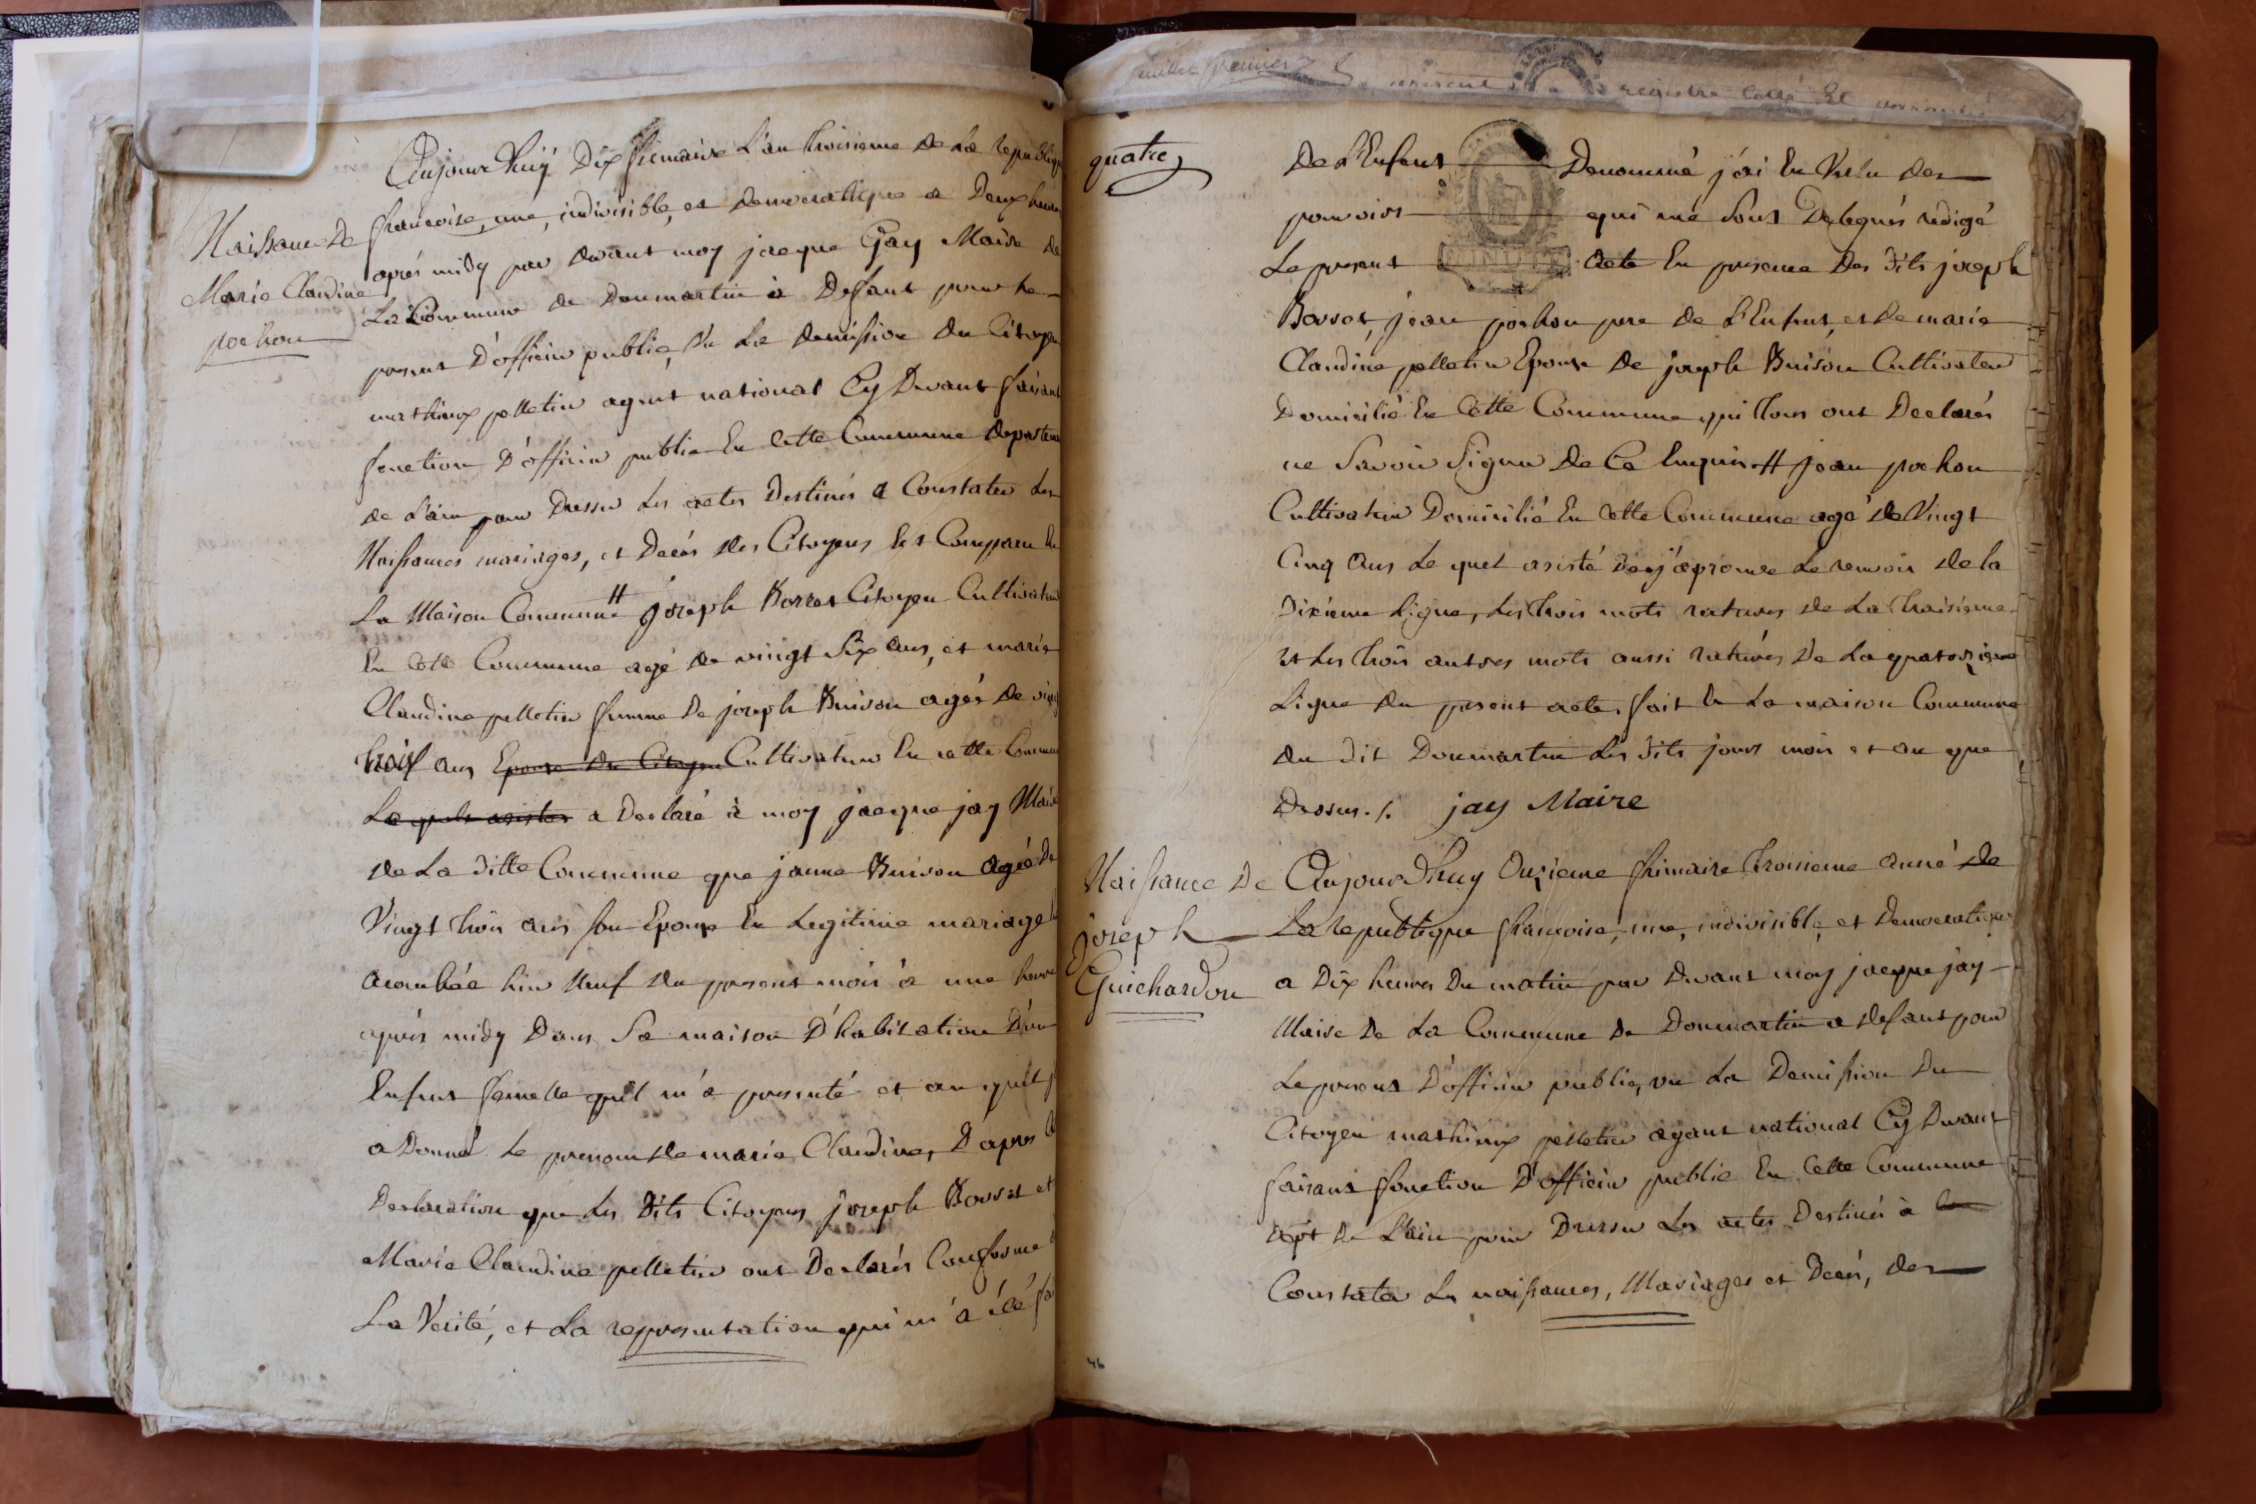 Aujourdhuÿ Dix frimaire L'an troisieme de La republique
Naissance De
Marie Claudine
pochon
francoise, une, indivisible, et democratique a Deux heures
aprés midy par devant moy jacque Gay Maire de
La Commune de Donmartin à Defaut pour le
present D'officier public, vu La demission du Citoyen
mathieux pelletier agent national Cy Devant faisant
fonction D'officier public En Cette Commune departem
de L'ain pour Dresser Les actes Destinés a Constater Les
Naissances mariages, et Decés des Citoyens Est Comparu En
La Maison Commune # joseph Borret Citoyen Cultivateur
En Cette Commune agé de vingt Six ans, et marie
Claudine pelletier femme De joseph Buison agée de ving
trois ans Epouse du Citoyen Cultivateur En cette Commune
Le quels asistes a Declaré à moy jacque jay Maire
de La ditte Commune que janne Buison agée De
Vingt trois ans son Epouse En Legitime mariage
acouchée hier Neuf du present mois à une heure
aprés midy Dans Sa maison D'habitation D'un
Enfant femelle qu'il m'a presenté et au quel
a Donné Le prenom de marie Claudine, D'apres
Declaration que Les Dits Citoyens joseph Borret et
Marie Claudine pelletier ont Declarés Conforme
La Vérité, et La representation qui m'a été fai
feuillet premier
present registre Cotté Et
quatre
De L'Enfant Denommé j'ai En Vertu des
pouvoirs qui me Sont Delegués redigé
Le present acte En presence Des dits joseph
MINUTE
Borret, jean pochon pere de L'Enfant, et de marie
Claudine pelletier Epouse De joseph Buison Cultivateur
Domicilié En Cette Commune qui tous ont Declarés
ne Savoir Signer De Ce Enquis # jean pochon
Cultivateur Domicilié En Cette Commune agé de Vingt
Cinq ans Le quel asisté j'aprouve Le renvoir de la
Dixieme Ligne, Les trois mots raturés de La troisieme
et Les trois autres mots aussi raturés De La quatorzieme
Ligne du present acte, fait En La maison Commune
du dit Donmartin Les dits jours mois et an que
Dessus ./. jay Maire
Naissance De
joseph
Guichardon
Aujourdhuy Onzieme frimaire troisieme anné de
La republique francoise, une, indivisible, et Democratique
a Dix heures Du matin par Devant moy jacque jay
Maire De La Commune De Donmartin a defaut pour
Le present D'officier public, vu La Demission Du
Citoyen mathieux pelletier agent national Cy Devant
faisant fonction D'officier public En Cette Commune
dept de L'ain pour Dresser Les actes Destinés à
Constater Les naissances, Mariages et Decés, des
46